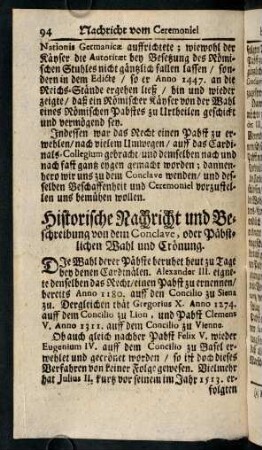 94 Nachricht vom Ceremoniel
Nationis Germanicæ auffrichtete ; wiewohl der
Käyser die Autorität bey Besetzung des Römi-
schen Stuhles nicht gäntzlich fallen lassen / son-
dern in dem Edicte / so er Anno 1447. an die
Reichs-Stände ergehen ließ / hin und wieder
zeigte / daß ein Römischer Käyser von der Wahl
eines Römischen Pabstes zu Urtheilen geschickt
und vermögend sey.
Indessen war das Recht einen Pabst zu er-
wehlen / nach vielem Umwegen / auff das Cardi-
nals-Collegium gebracht und demselben nach und
nach fast gantz eygen gemacht worden ; dannen-
hero wir uns zu dem Conclave wenden / und des-
selben Beschaffenheit und Ceremoniel vorzustel-
len uns bemühen wollen.
Historische Nachricht und Be-
schreibung von dem Conclave, oder Päbst-
lichen Wahl und Crönung.
DIe Wahl derer Päbste beruhet heut zu Tage
bey denen Cardinälen. Alexander III. eigne-
te denselben das Recht / einen Pabst zu ernennen /
bereits Anno 1180. auff den Concilio zu Siena
zu. Dergleichen thät Gregorius X. Anno 1274.
auff dem Concilio zu Lion, und Pabst Clemens
V. Anno 1311. auff dem Concilio zu Vienne.
Ob auch gleich nachher Pabst Felix V. wieder
Eugenium IV. auff dem Concilio zu Basel er-
wehlet und gecrönet worden / so ist doch dieses
Verfahren von keiner Folge gewesen. Vielmehr
hat Julius II. kurtz vor seinem im Jahr 1513. er-
folgten